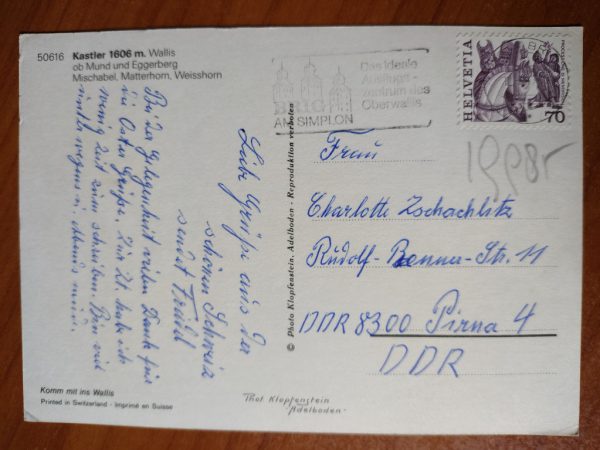 50616 Kastler 1606 m. Wallis
ob Mund und Eggerberg
Mischabel, Matterhorn, Weisshorn
Bei der Gelegenheit vielen Dank für
die Oster Grüße. Zur Zt. habe ich
wenig Zeit zum schreiben. Bin viel
unterwegs u. abends müde.
Liebe Grüße aus der
schönen Schweiz
sendet Trudel
Komm mit ins Wallis
Printed in Switzerland - Imprimé en Suisse
© Photo Klopfenstein, Adelboden - Reproduktion verboten
Phot. Klopfenstein
Adelboden
BRIG
AM SIMPLON
Das ideale
Ausflugs-
zentrum des
Oberwallis
HELVETIA
70
Frau
Charlotte Zschachlitz
Rudolf-Renner-Str. 11
DDR 8300 Pirna 4
DDR